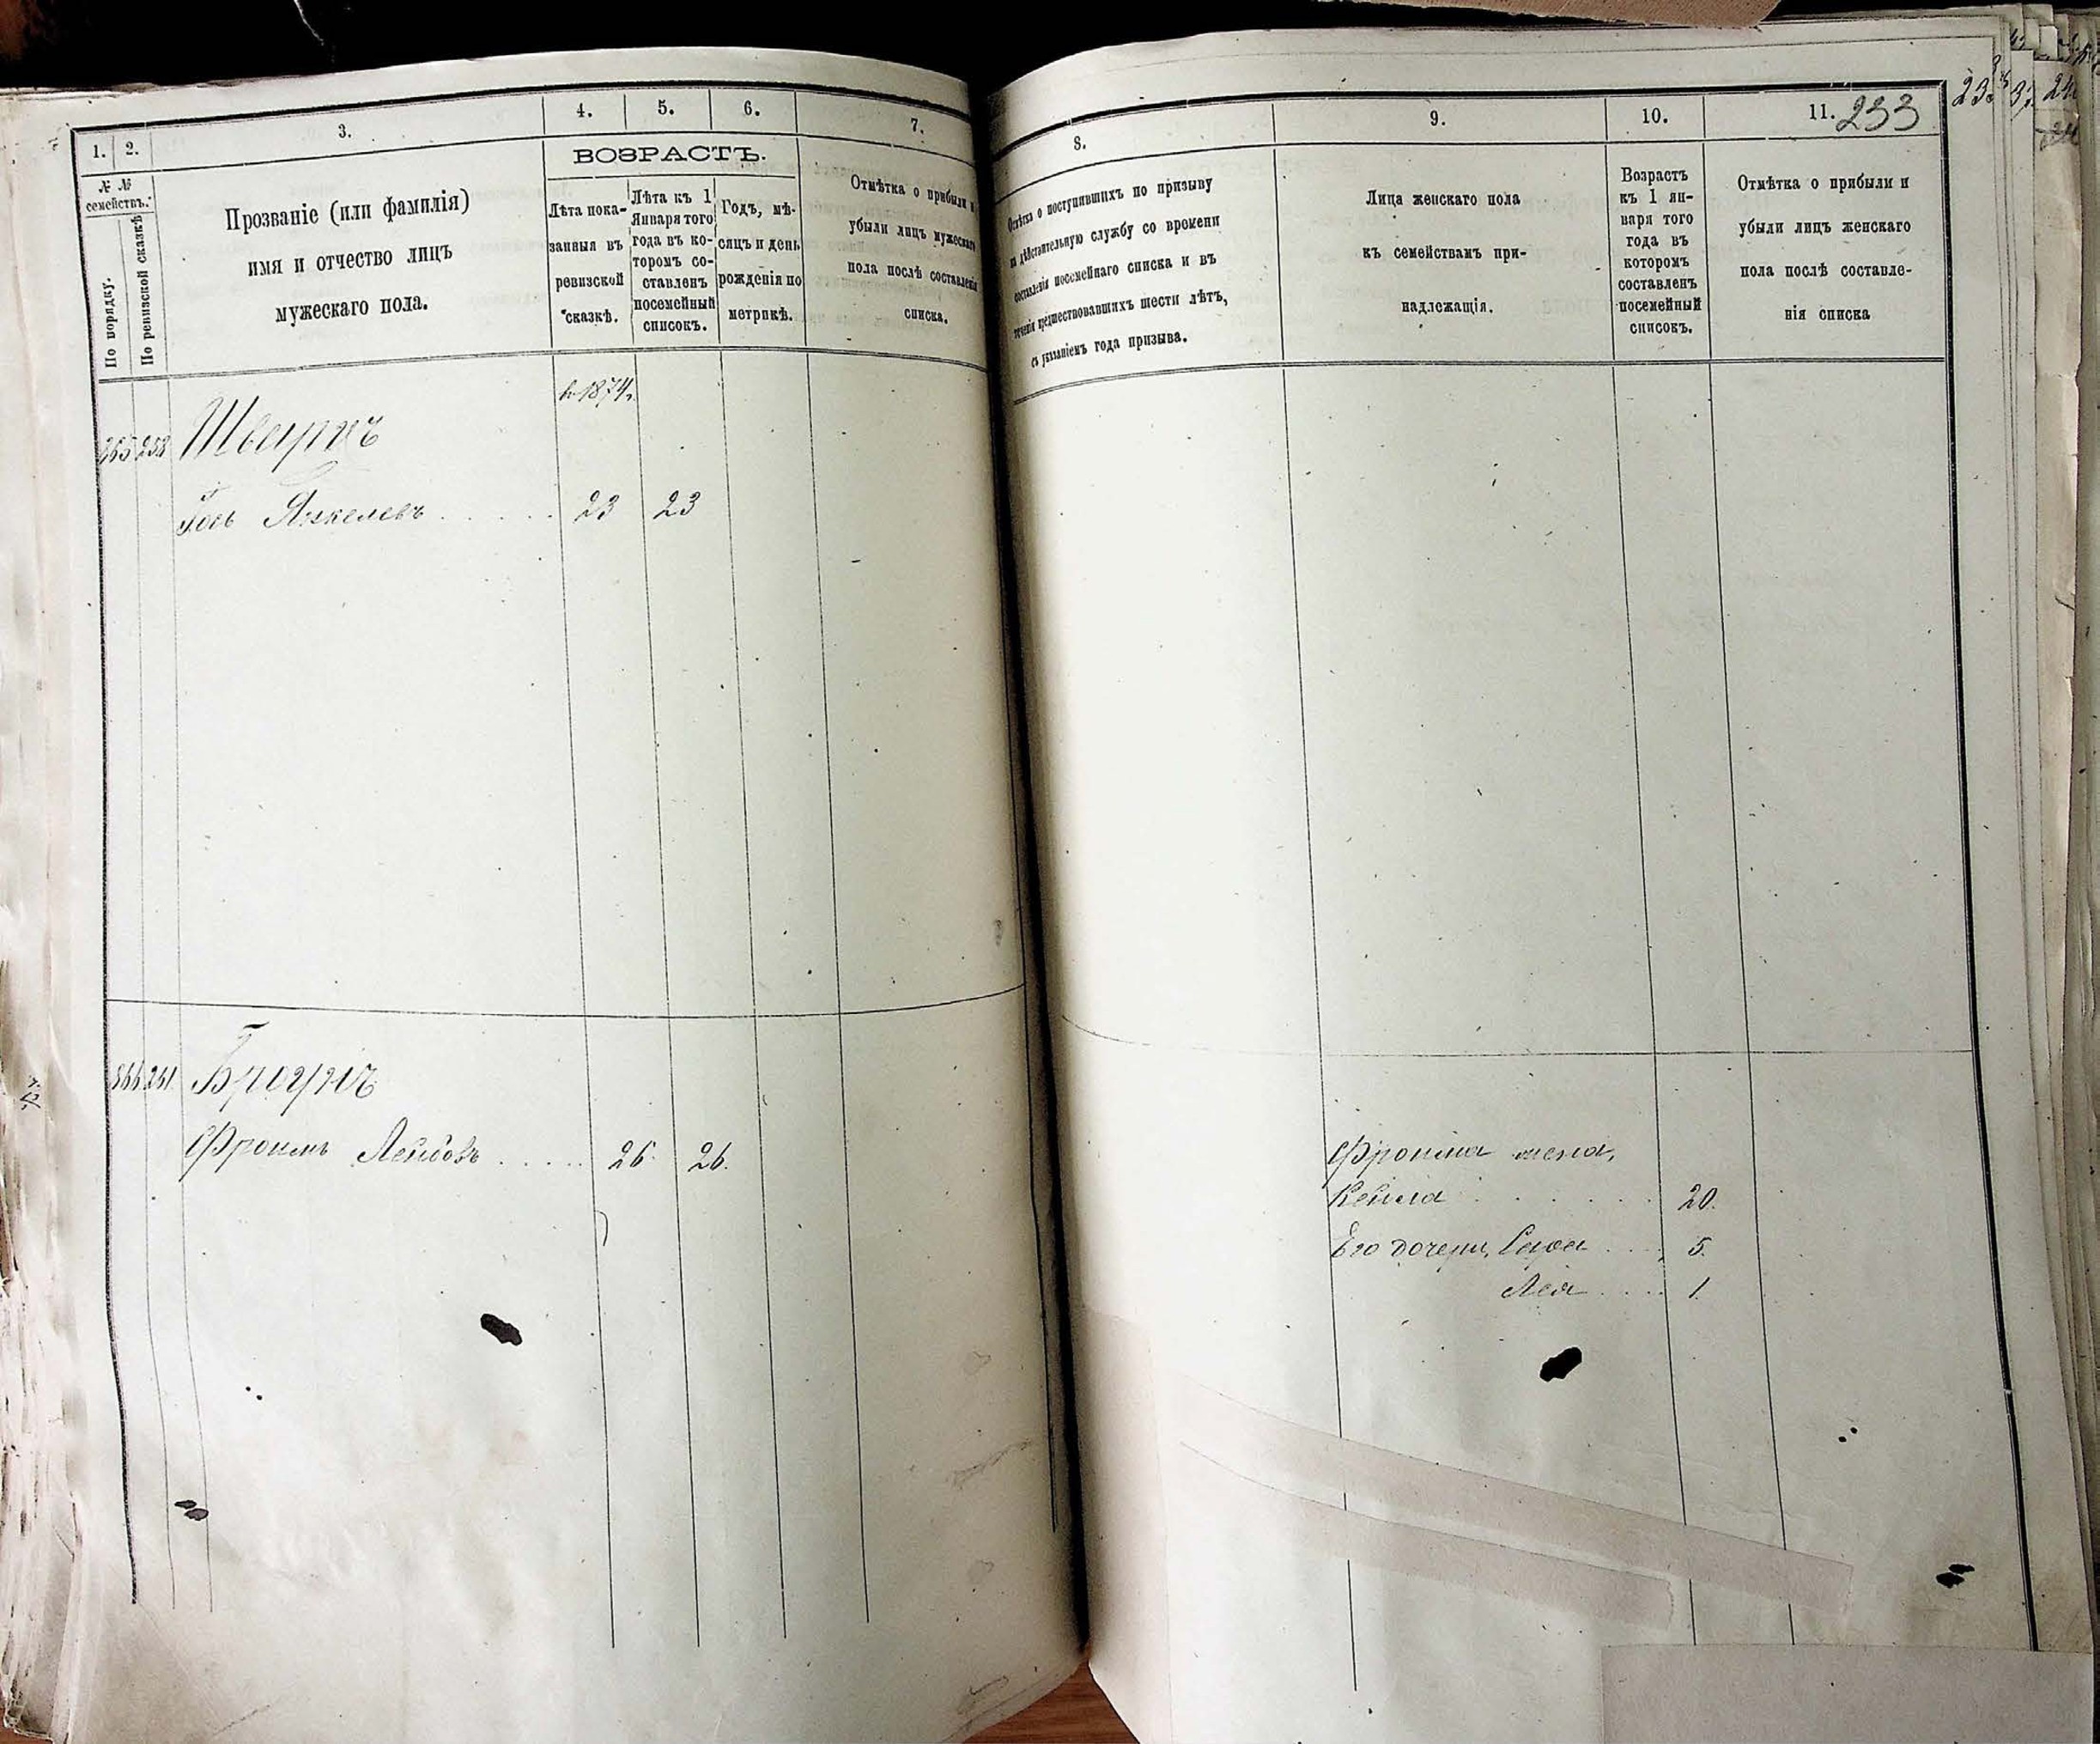 1.
2.
3.
4.
5.
6.
7.
№ №
семействъ.
По порядку.
По ревизской сказкѣ
Прозваніе (или фамилія)
имя и отчество лицъ
мужескаго пола.
ВОЗРАСТЪ.
Лѣта пока-
занныя въ
ревизской
сказкѣ.
Лѣта къ 1
Января того
года въ ко-
торомъ со-
ставленъ
посемейный
списокъ.
Годъ, мѣ-
сяцъ и день
рожденія по
метрикѣ.
Отмѣтка о прибыли и
убыли лицъ мужескаго
пола послѣ составленія
списка.
в 1874 г.
265 258 Шварцъ
Янкелевъ 23 23
261 Браунъ
Фроимъ Лейбовъ 26 26.
8.
9.
10.
11. 233
Отмѣтка о поступившихъ по призыву
на дѣйствительную службу со времени
составленія посемейнаго списка и въ
теченіи предшествовавшихъ шести лѣтъ,
съ указаніемъ года призыва.
Лица женскаго пола
къ семействамъ при-
надлежащія.
Возрастъ
къ 1 ян-
варя того
года въ
которомъ
составленъ
посемейный
списокъ.
Отмѣтка о прибыли и
убыли лицъ женскаго
пола послѣ составле-
нія списка
Фроима жена,
Кейла 20.
Его дочери, Сура 5.
Лея 1.